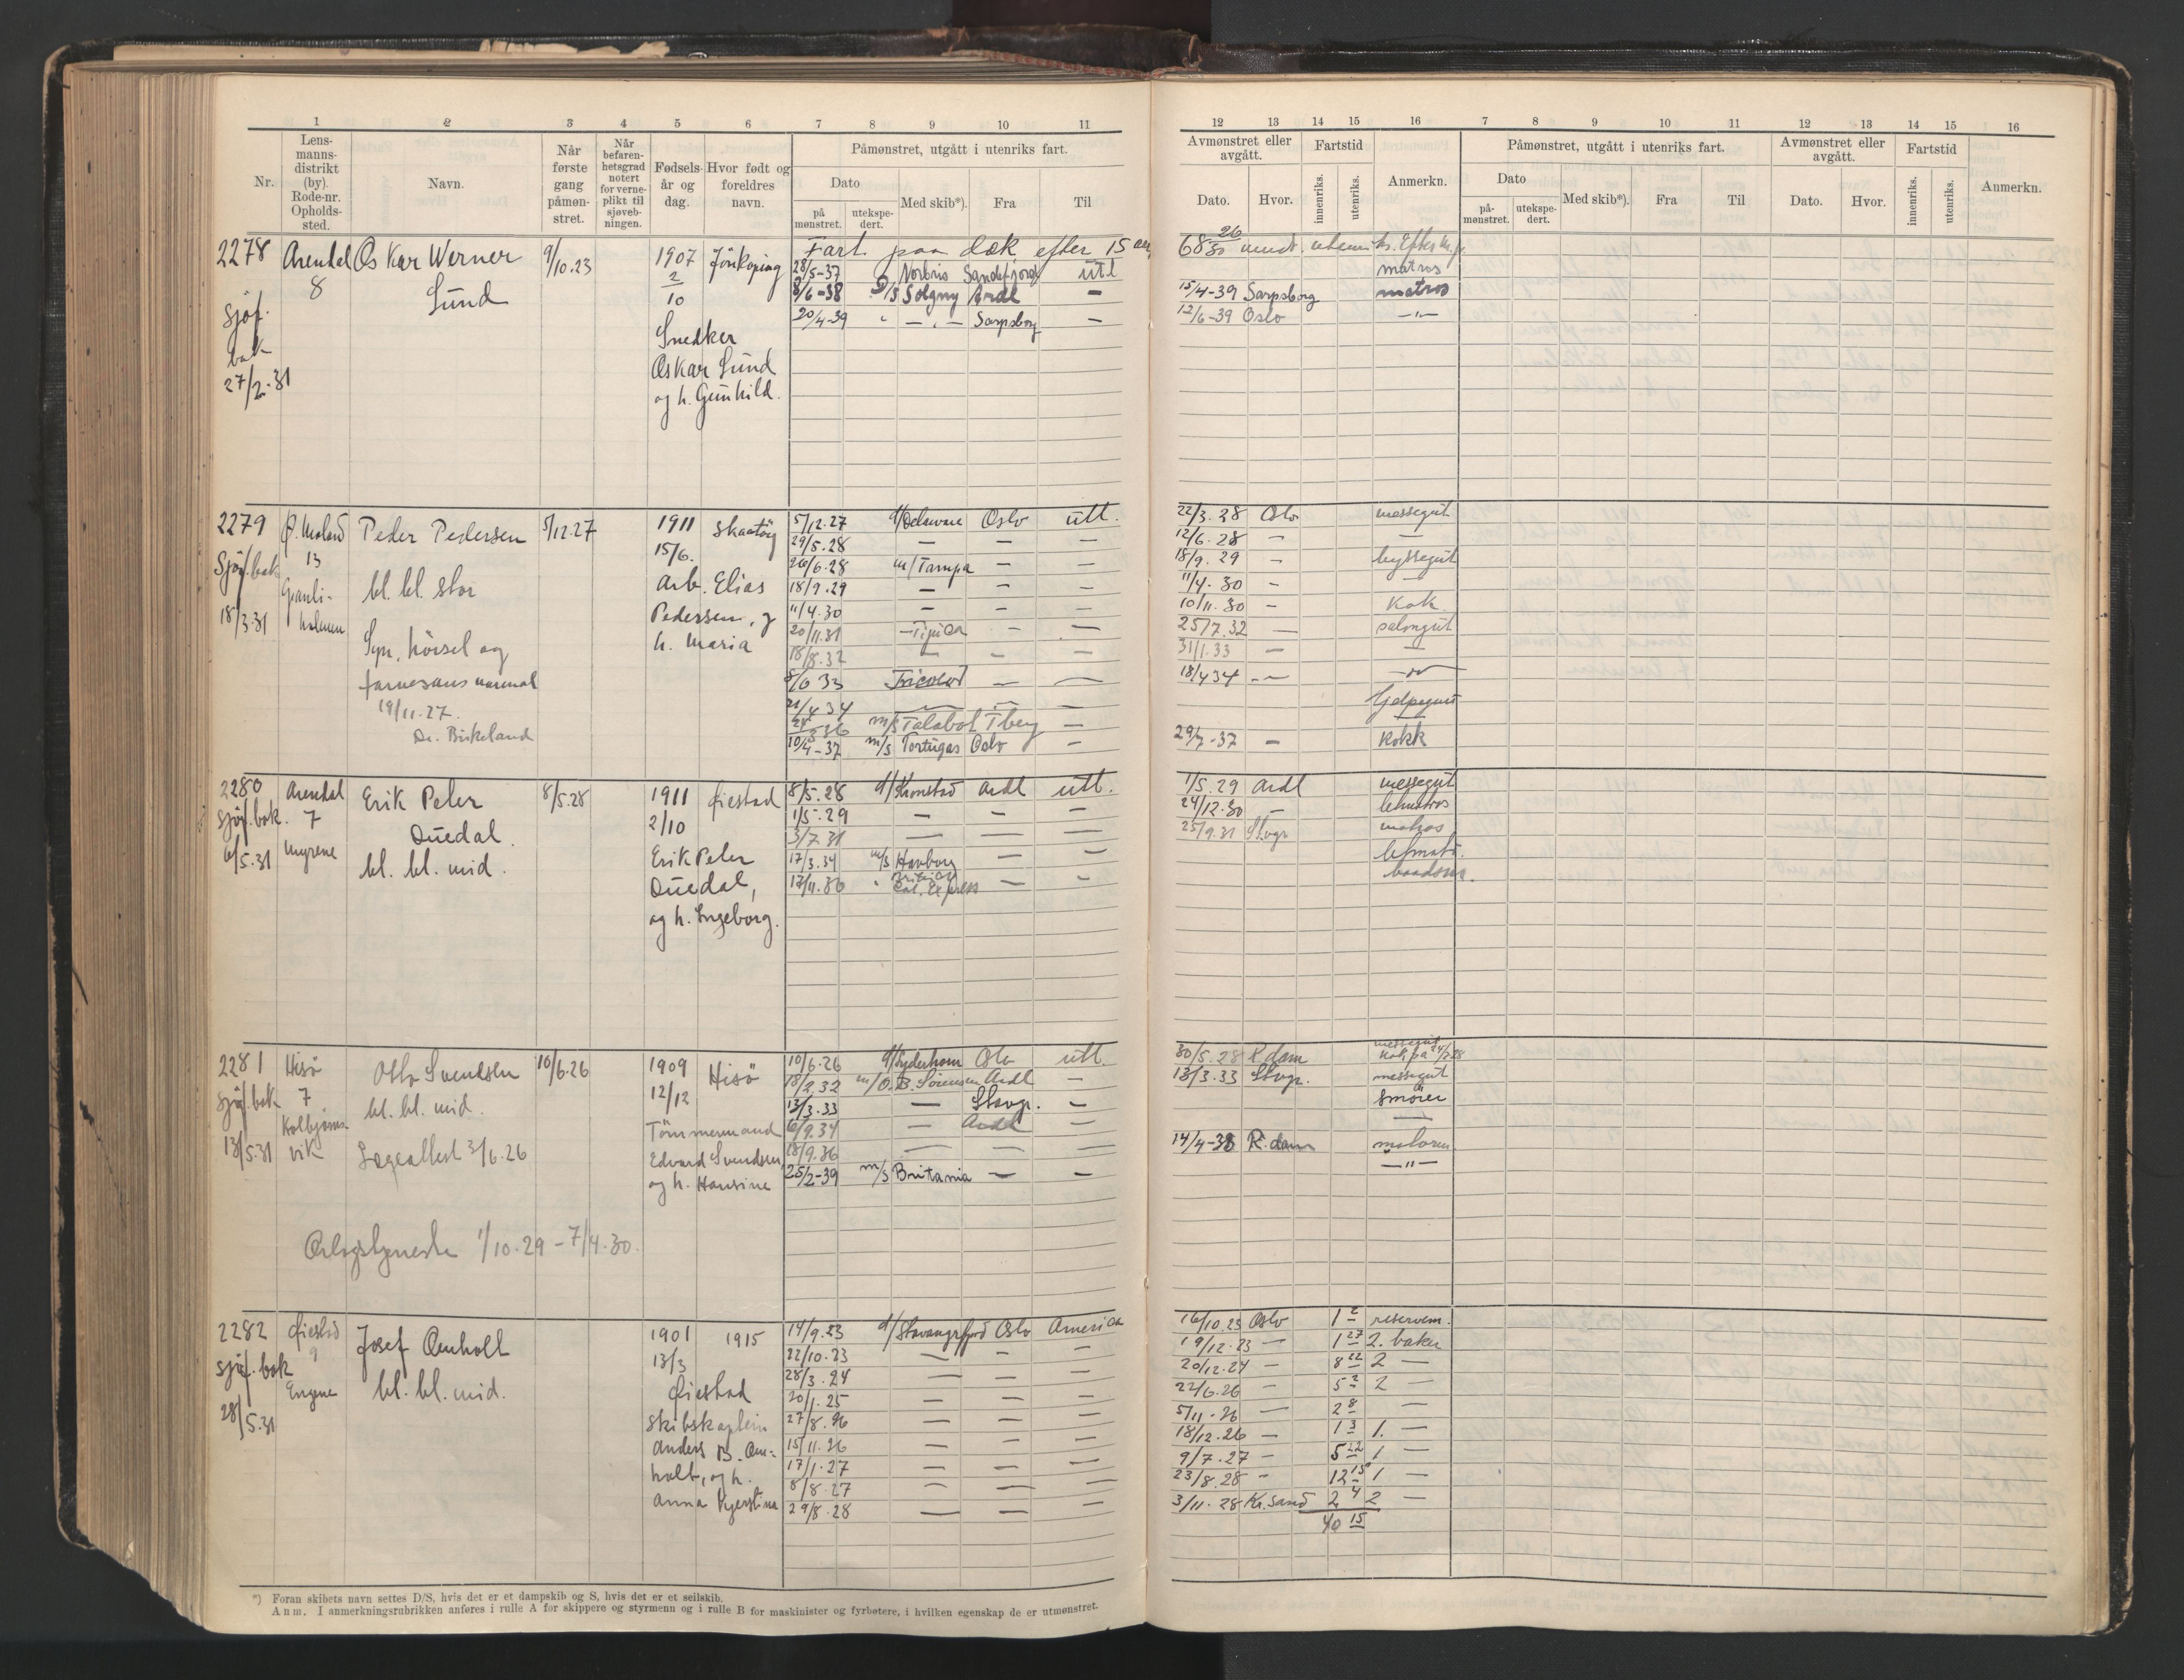 1 2 3 4 5 6 7 8 9 10 11
Nr. Lens-manns-distrikt (by). Rode-nr. Opholds-sted. Navn. Når første gang påmøn-stret. Når befaren-hetsgrad notert for verne-plikt til sjøveb-ningen. Fødsels-år og dag. Hvor født og foreldres navn. Påmønstret, utgått i utenriks fart.
Dato Med skib*). Fra Til
på mønstret. utekspe-dert.
2278 Arendal Oskar Werner 9/10.23 1907 Jönköping Fart paa dæk efter 15 aar
8 Sund 2/10 28/5-37 Norbris Sandefjord utl
sjøf. 8/6-38 D/S Solgny Ardl —
bok 20/4-39 " — " — Sarpsborg —
27/2.31 Snedker
Oskar Sund
og h. Gunhild.
2279 Ø. Moland Peder Pedersen 5/12.27 1911 Skaatøy 5/12.27 d/Delaware Oslo utl.
13 15/6. 29/5.28 — — —
Sjøf.bok 26/6.28 m/Tampa — —
bl. bl. stor Arb. Elias 18/9.29 — — —
18/3.31 holmen Pedersen, og 11/4.30 — — —
Syn, hörsel og h. Maria 20/11.31 — —
farvesans normal 18/8.32 — — —
19/11.27. 33 Tricolor — —
Dr. Birkeland 34 — — —
36 m/s Talabot Tberg —
10/4-37 m/s Tortugas Oslo —
2280 Arendal Erik Peter 8/5.28 1911 Øiestad 8/5.28 d/Kronstad Ardl utl.
sjøf.bok. 7 Duedal. 2/10 1/5.29 — — —
6/5.31 Myrene 3/7.31 — — —
bl. bl. mid. Erik Peter 17/3.34 m/s Havborg — —
Duedal, 17/11.36 " Cal. Express — —
og h. Ingeborg.
2281 Hisö Olav Svendsen 10/6.26 1909 Hisö 10/6.26 d/Tyderhorn Oslo utl.
sjøf.bok 7 bl. bl. mid. 12/12 18/2.32 m/O.B. Sörensen Ardl —
Kolbjörns- 13/3.33 — Stavgr. —
13/5.31 vik Lægeattest 3/6.26 Tömmermand 6/9.34 — Ardl —
Edvard Svendsen 18/9.36 — — —
og h. Hansine 25/2-39 m/s Britania — —
Orlogstjeneste 1/10.29 – 7/4.30.
2282 Øiestad Josef Omholt 1901 1915 14/9.23 d/Stavangrfjord Oslo America
9 13/3 22/10.23 — — —
sjøf.bok Engene bl. bl. mid. Øiestad 28/3.24 — — —
28/5.31 20/1.25 — — —
skibskaptein 27/8.26 — — —
Anders B. Om- 15/11.26 — — —
holt, og h. 17/1.27 — — —
Anna 8/8.27 — — —
29/8.28 — — —
*) Foran skibets navn settes D/S, hvis det er et dampskib og S, hvis det er et seilskib.
Anm. I anmerkningsrubrikken anføres i rulle A for skippere og styrmenn og i rulle B for maskinister og fyrbøtere, i hvilken egenskap de er utmønstret.
12 13 14 15 16 7 8 9 10 11 12 13 14 15 16
Avmønstret eller avgått. Fartstid Anmerkn. Påmønstret, utgått i utenriks fart. Avmønstret eller avgått. Fartstid Anmerkn.
Dato. Hvor. innenriks. utenriks. Dato på-mønstret. utekspe-dert. Med skib*). Fra Til Dato. Hvor. innenriks. utenriks.
68 26/30 utenriks.
matros
15/4-39 Sarpsborg matros
12/6-39 Oslo — " —
22/3.28 Oslo messegut
12/6.28 — —
18/9.29 — byssegut
11/4.30 — —
10/11.30 — Kok.
25/7.32 — salongut
31/1.33 — —
18/4 34 — —
Hjelpegut
29/7-37 — Kokk
1/5.29 Ardl messegut
24/12.30 — letmatros
25/9.31 Stvgr matros
letmatr.
baadsm.
30/5.28 R.dam messegut
kok fra
13/3.33 Stvgr. messegut
Smører
—
14/4-38 R.dam motorm.
— " —
16/10.23 Oslo 1 2 reservem.
19/12.23 — 1 27 2. baker
20/12.24 — 8 22 2 —
22/6.26 — 5 2 2 —
5/11.26 — 2 8 —
18/12.26 — 1 3 1. —
9/7.27 — 5 22 1 —
23/8.28 — 12 15 1 —
3/11.28 Kr.sand 2 4 2 —
40 15